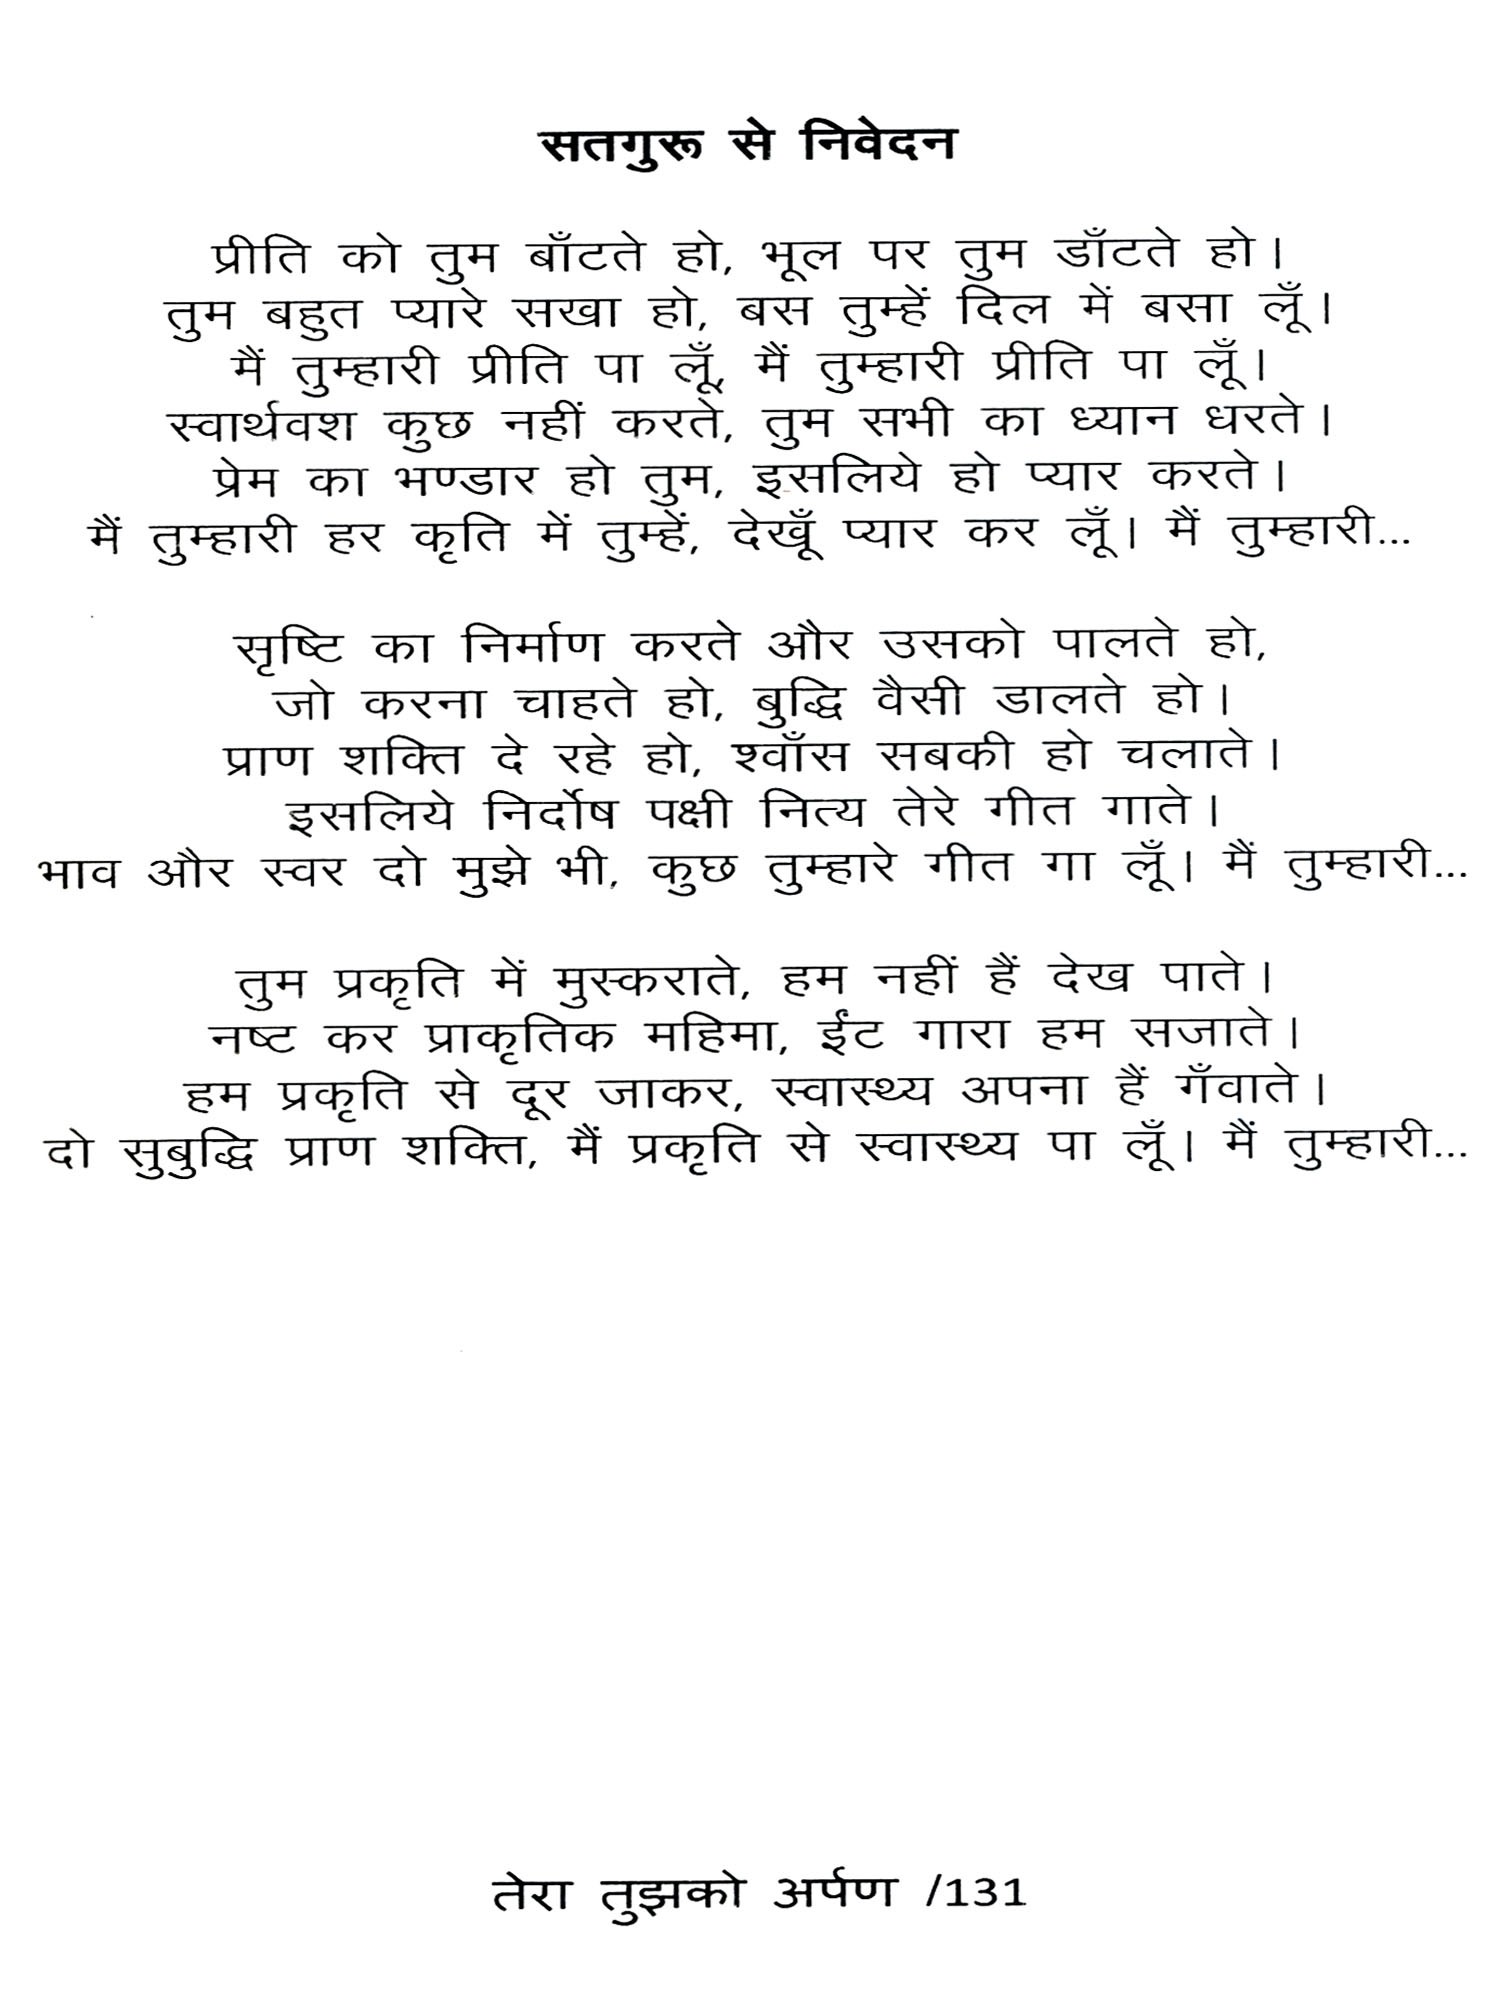 सतगुरू से निवेदन
प्रीति को तुम बाँटते हो, भूल पर तुम डाँटते हो।
तुम बहुत प्यारे सखा हो, बस तुम्हें दिल में बसा लूँ।
मैं तुम्हारी प्रीति पा लूँ, मैं तुम्हारी प्रीति पा लूँ।
स्वार्थवश कुछ नहीं करते, तुम सभी का ध्यान धरते।
प्रेम का भण्डार हो तुम, इसलिये हो प्यार करते।
मैं तुम्हारी हर कृति में तुम्हें, देखूँ प्यार कर लूँ। मैं तुम्हारी...
सृष्टि का निर्माण करते और उसको पालते हो,
जो करना चाहते हो, बुद्धि वैसी डालते हो।
प्राण शक्ति दे रहे हो, श्वाँस सबकी हो चलाते।
इसलिये निर्दोष पक्षी नित्य तेरे गीत गाते।
भाव और स्वर दो मुझे भी, कुछ तुम्हारे गीत गा लूँ। मैं तुम्हारी...
तुम प्रकृति में मुस्कराते, हम नहीं हैं देख पाते।
नष्ट कर प्राकृतिक महिमा, ईंट गारा हम सजाते।
हम प्रकृति से दूर जाकर, स्वास्थ्य अपना हैं गँवाते।
दो सुबुद्धि प्राण शक्ति, मैं प्रकृति से स्वास्थ्य पा लूँ। मैं तुम्हारी...
तेरा तुझको अर्पण /131